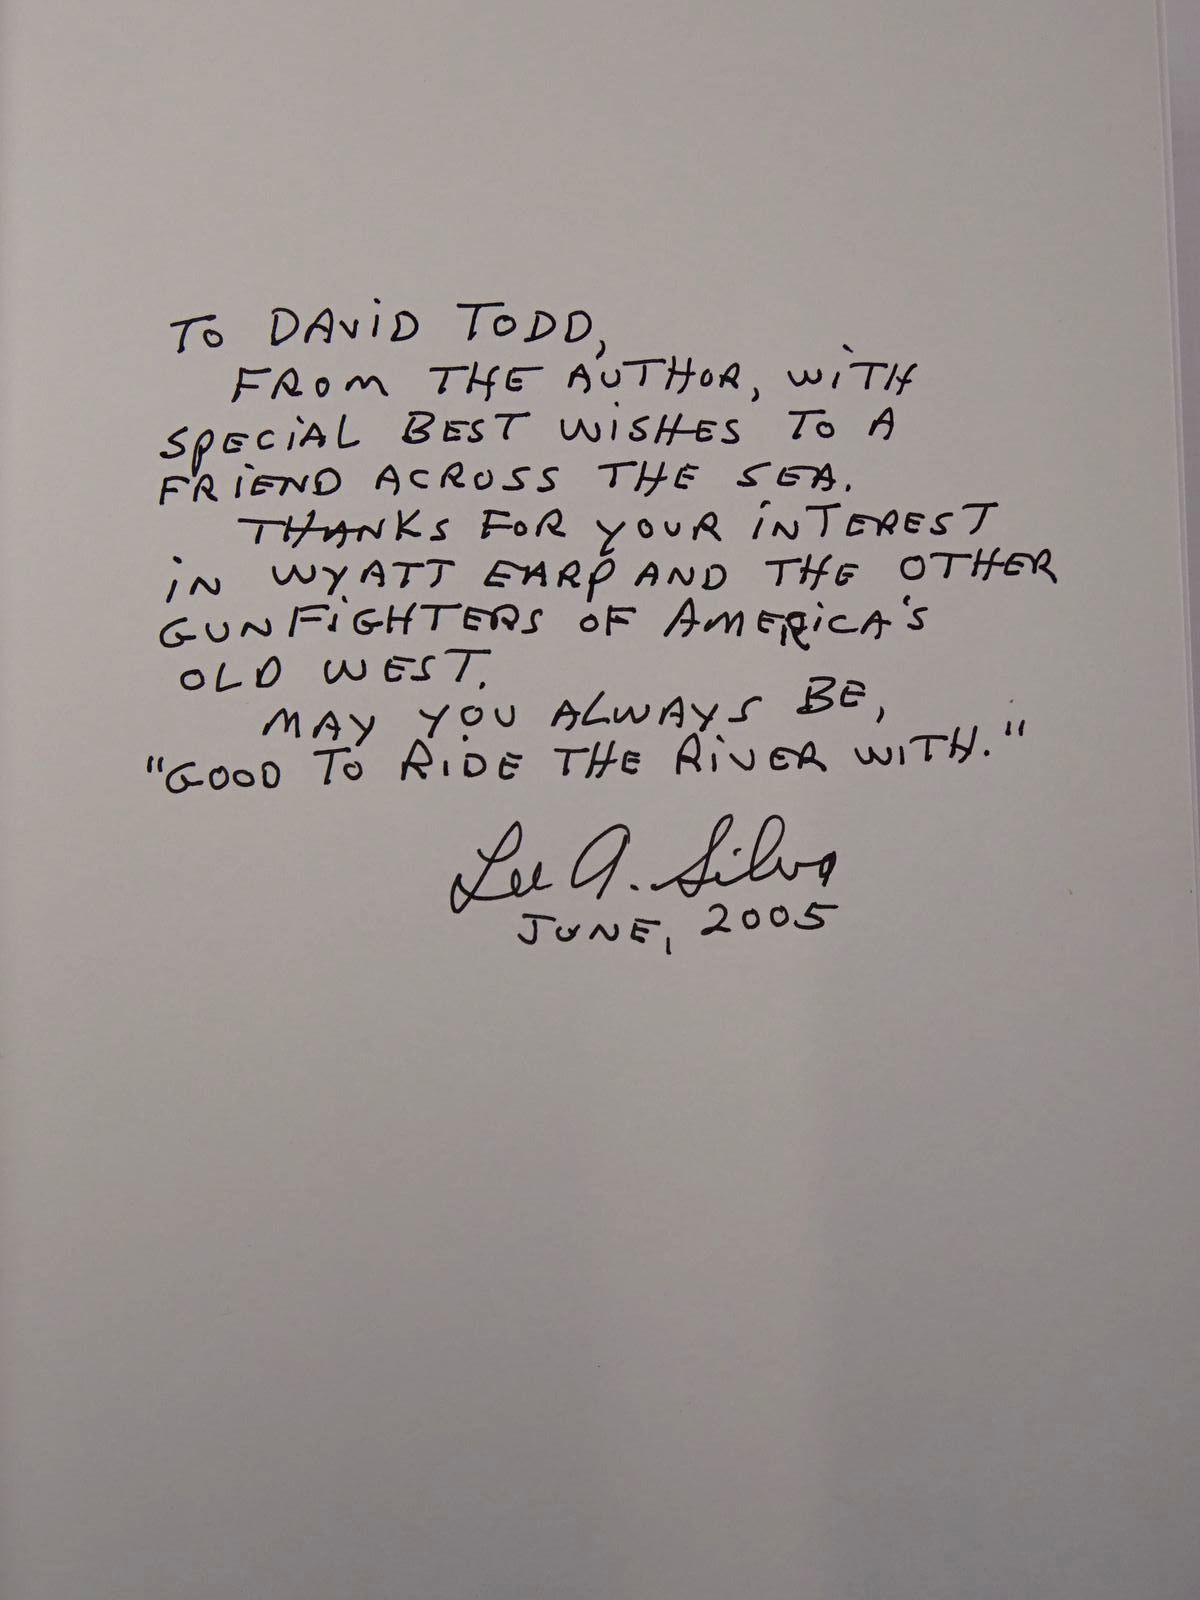 TO DAVID TODD,
FROM THE AUTHOR, WITH
SPECIAL BEST WISHES TO A
FRIEND ACROSS THE SEA.
THANKS FOR YOUR INTEREST
IN WYATT EARP AND THE OTHER
GUNFIGHTERS OF AMERICA'S
OLD WEST.
MAY YOU ALWAYS BE,
"GOOD TO RIDE THE RIVER WITH."
Lee A. Silva
JUNE, 2005